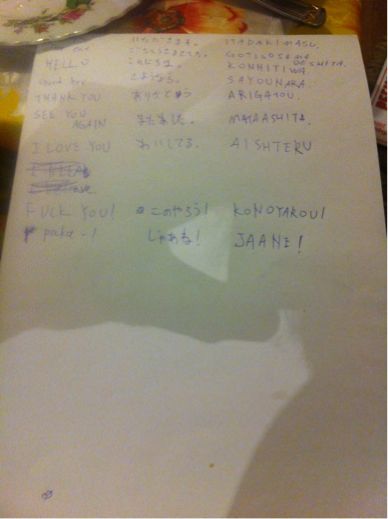 いただきます。 ITADAKIMASU.
ごちそうさまでした。 GOTISOSAMA DESHITA.
HELLO こんにちは。 KONHITIWA
Good bye さよなら。 SAYOUNARA.
THANK YOU ありがとう ARIGATOU.
SEE YOU AGAIN またあした。 MATAASHITA.
I LOVE YOU あいしてる。 AISHTERU
FUCK YOU! このやろう! KONOYAROU!
じゃあね! JAANE!